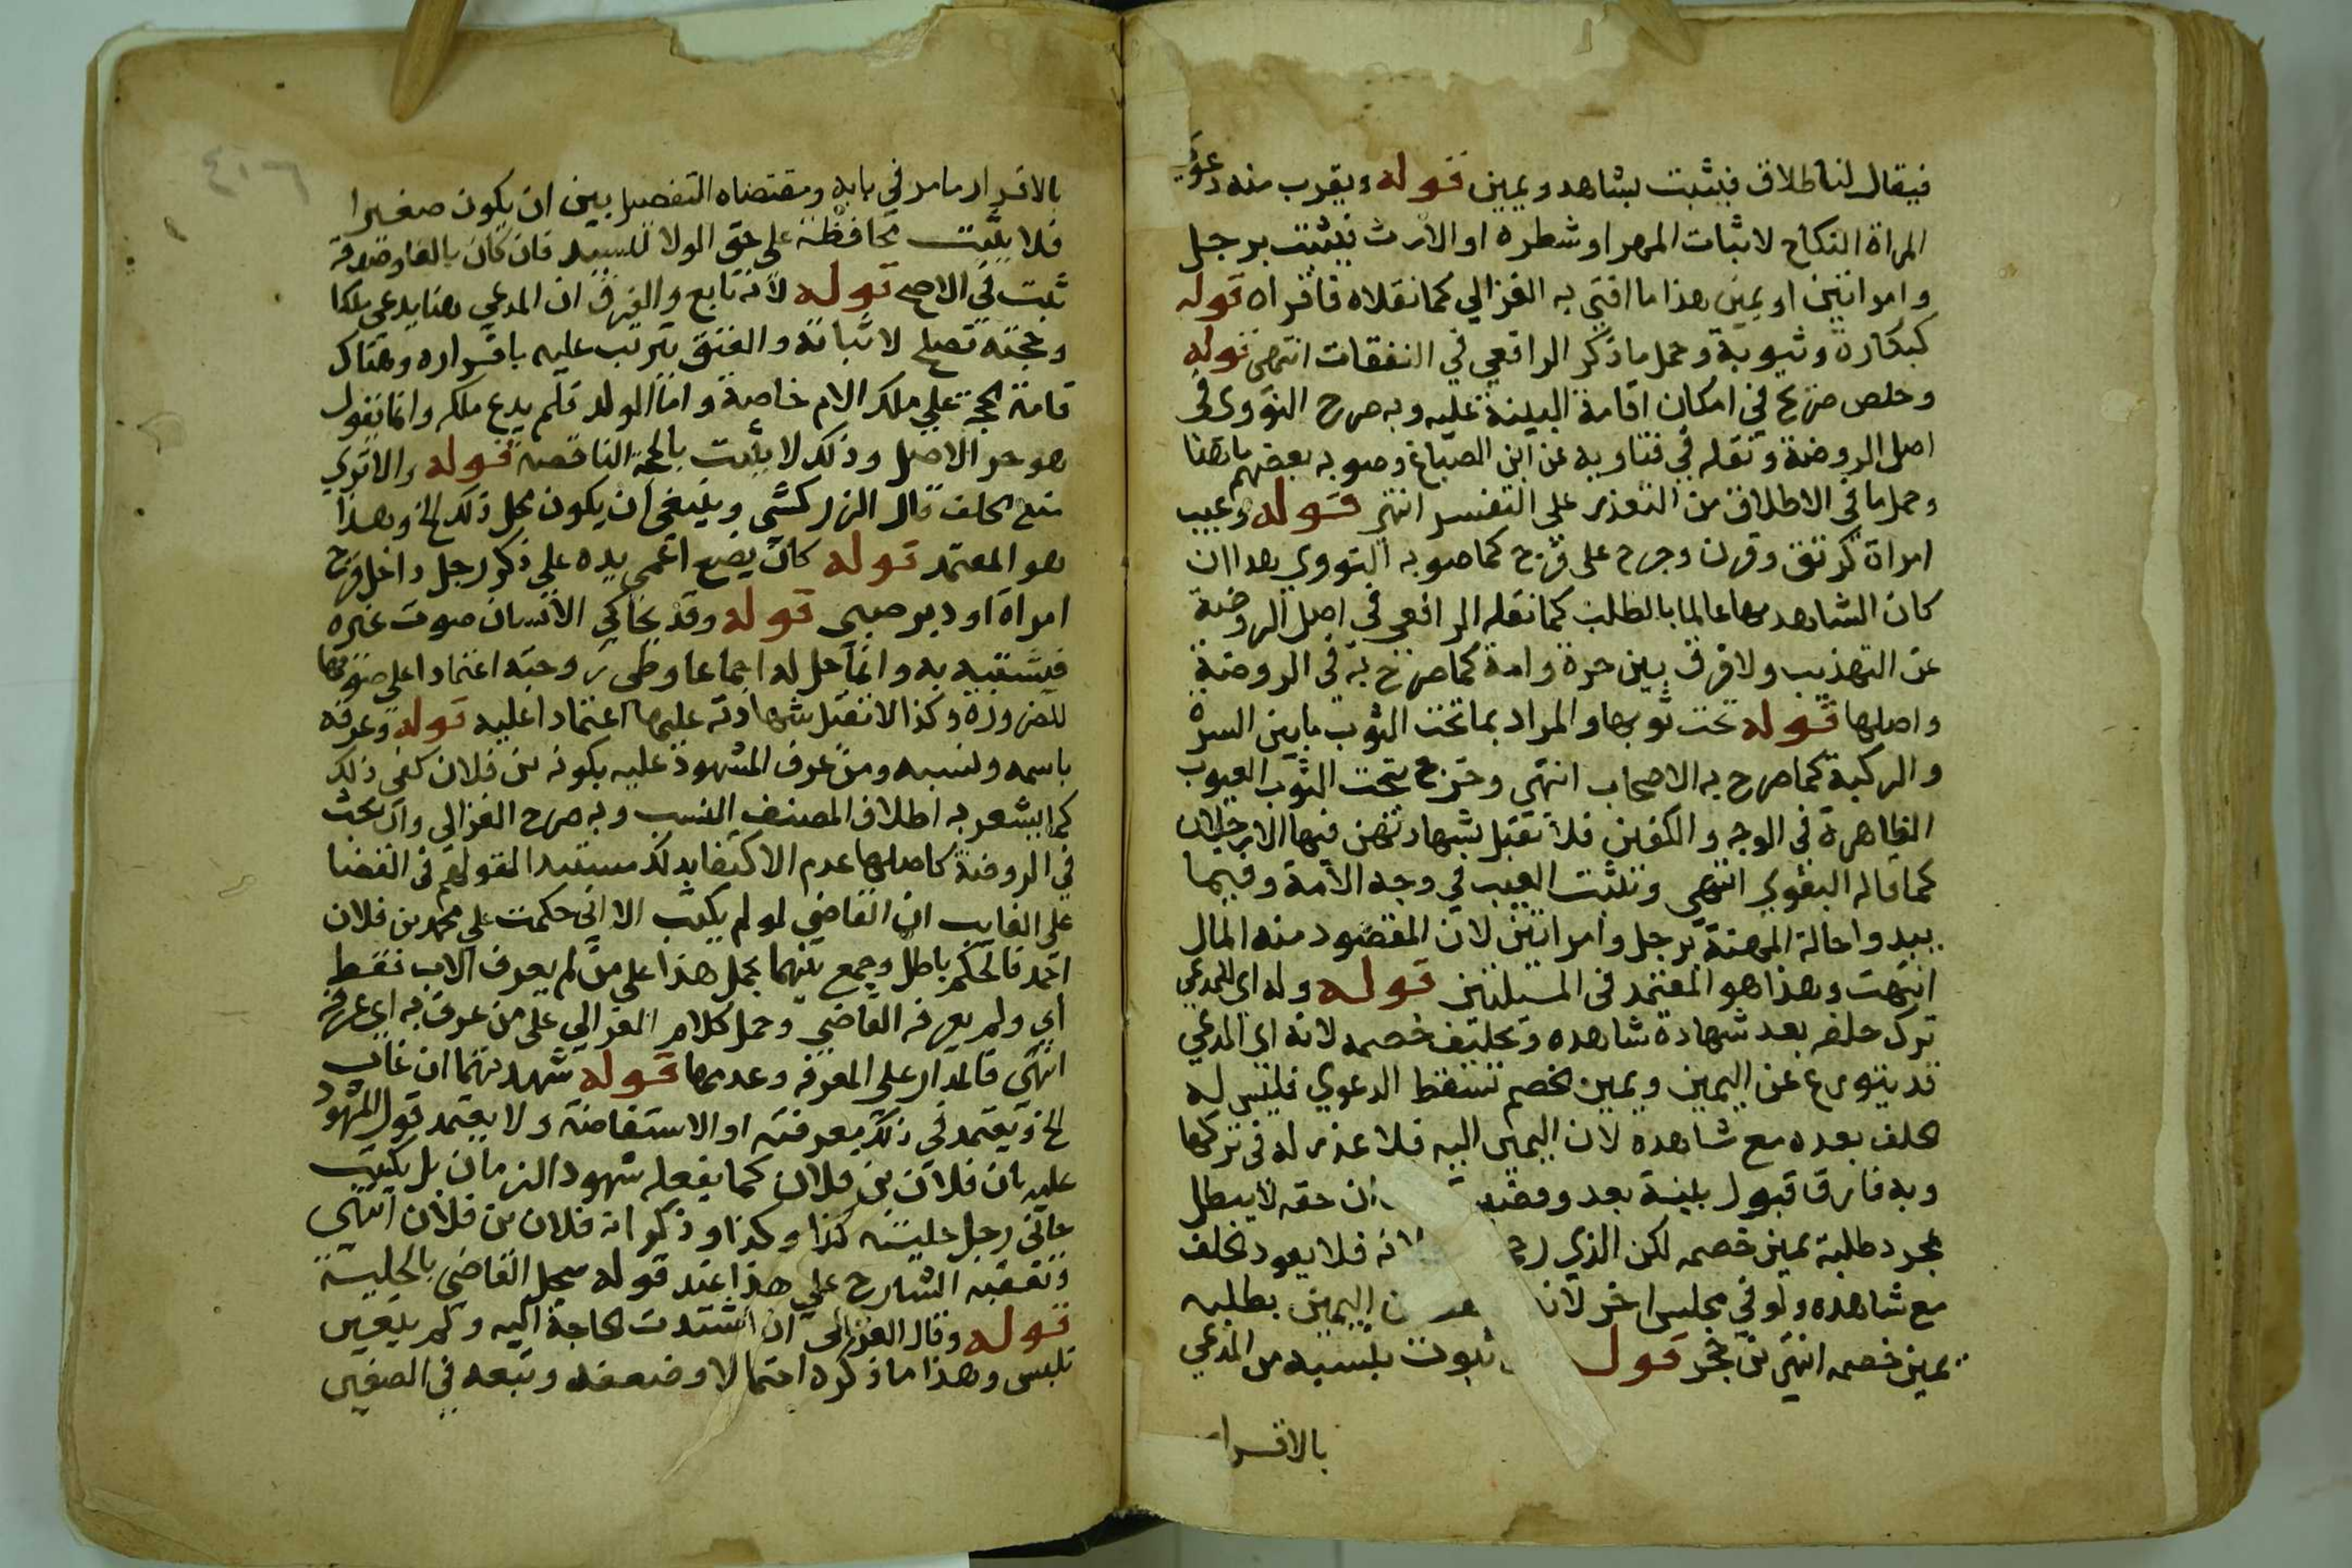 فيقال لنا طلاق فيثبت بشاهد ويمين قوله ويقرب منه دعوى
المراة النكاح لاثبات المهر او شطره او الارث فيثبت برجل
وامراتين او يمين هذا ما افتى به الغزالي كما نقلاه فاقراه قوله
كبكارة وثيوبة وحمل ما ذكر الرافعي في النفقات انتهى قوله
وخلص صريح في امكان اقامة البينة عليه وبه صرح النووي في
اصل الروضة ونقله في فتاويه عن ابن الصباغ وصوبه بعضهم
وحمل ما في الاطلاق من التعذر على التعسر انتهى قوله وعيب
امراة كرتق وقرن وجرح على فرج كما صوبه النووي هذا ان
كان الشاهد بها عالما بالطلب كما نقله الرافعي في اصل الروضة
عن التهذيب ولا فرق بين حرة وامة كما صرح به في الروضة
واصلها قوله تحت ثوبها والمراد بما تحت الثوب ما بين السرة
والركبة كما صرح به الاصحاب انتهى وخرج بتحت الثوب العيوب
الظاهرة في الوجه والكفين فلا تقبل شهادتهن فيها الا رجلان
كما قاله البغوي انتهى ويثبت العيب في وجه الامة وفيما
يبدوا حالة المهنة برجل وامراتين لان المقصود منه المال
انتهت وهذا هو المعتمد في المسئلتين قوله وله اي للمدعي
ترك حلفه بعد شهادة شاهده وتحليف خصمه لانه اي المدعي
قد يتورع عن اليمين ويمين الخصم تسقط الدعوي فليس له
الحلف بعده مع شاهده لان اليمين اليه فلا عذر له في تركها
وبه فارقا قبول بينة بعد ان حقه لا يبطل
بمجرد طلبه يمين خصمه لكن الذي فلا يعود لحلف
مع شاهده ولو في مجلس اخر لانه اليمين بطلبه
يمين خصمه انتهى بن حجر قوله ثبوت نسبه من المدعي
بالاقرار
٤١٦
بالاقرار ما مر في بابه ومقتضاه التفصيل بين ان يكون صغيرا
فلا يثبت محافظة على حق الولا للسيد فان كان بالغا وصدقه
ثبت في الاصح قوله لانه تابع والفرق ان المدعي هنا يدعى ملكا
وحجته تصلح لاثباته والعتق يترتب عليه باقراره وهناك
قامت الحجة علي ملك الام خاصة واما الولد فلم يدع ملكه وانما نقول
هو حر الاصل وذلك لا يثبت بالحجة الناقصة قوله والاقوي
منع الحلف قال الزركشي وينبغي ان يكون محل ذلك الخ وهذا
هو المعتمد قوله كان يضع اعمى يده علي ذكر رجل داخل فرج
امراة او دبر صبى قوله وقد يحاكي الانسان صوت غيره
فيشتبه به وانما حل له اجماعا وطى زوجته اعتمادا على صوتها
للضرورة وكذا لا تقبل شهادته عليها اعتمادا عليه قوله وعرفه
باسمه ونسبه ومن عرف المشهود عليه بكونه بن فلان كفى ذلك
كما يشعر به اطلاق المصنف النسب وبه صرح الغزالي وان بحث
في الروضة كاصلها عدم الاكتفا بذلك مستندا لقولهم في القضا
على الغايب ان القاضي لو لم يكتب الا اني حكمت على محمد بن فلان
احمد فالحكم باطل وجمع بينهما بحمل هذا على من لم يعرف الاب فقط
اي ولم يعرفه القاضي وحمل كلام الغزالي على من عرف به اي عرفه
انتهى فالمدار على المعرفه وعدمها قوله شهد بهما ان غاب
الخ ويعتمد في ذلك معرفته او الاستفاضة ولا يعتمد قول المشهود
عليه بان فلان بن فلان كما يفعله شهود الزمان بل يكتب
جاني رجل حليته كذا وكذا وذكر انه فلان بن فلان انتهى
وتعقبه الشارح علي هذا عند قوله سجل القاضي بالحلية
قوله وقال الغزالى ان اشتدت الحاجة اليه ولم يتعين
تلبس وهذا ما ذكره احتمالا وضعفه وتبعه في الصغير